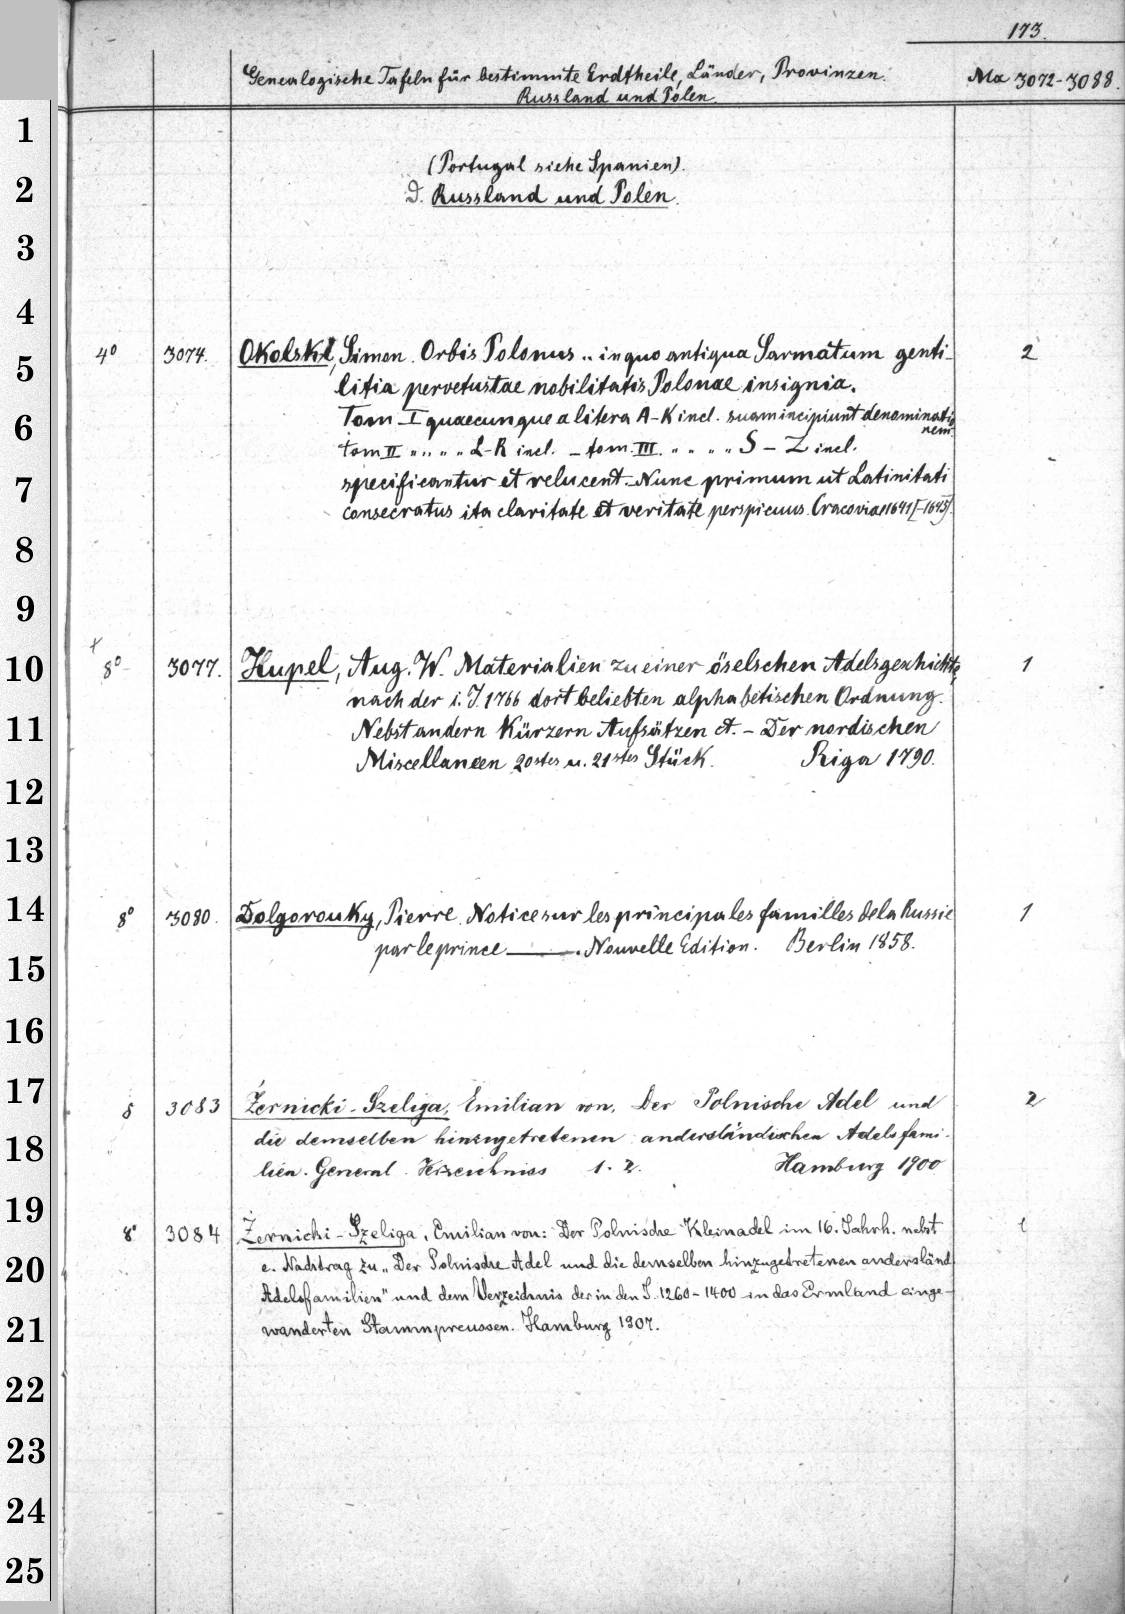 173.
Genealogische Tafeln für bestimmte Erdtheile, Länder, Provinzen. Ma 3072-3088.
Russland und Polen.
1
(Portugal siehe Spanien).
2
D. Russland und Polen.
3
4
4° 3074. Okolski, Simon. Orbis Polonus .. in quo antiqua Sarmatum genti- 2
5
litia pervetustae nobilitatis Polonae insignia.
Tom I quaecunque a litera A-K incl. suam incipiunt denominatio
nem.
6
tom II " " " " L-R incl. - tom. III. " " " " S - Z incl.
7
specificantur et relucent. Nunc primum ut Latinitati
consecratus ita claritate et veritate perspicuus. Cracoviae 1641[-1645].
8
9
8° 3077. Hupel, Aug. W. Materialien zu einer öselschen Adelsgeschichte 1
10
nach der i. J. 1766 dort beliebten alphabetischen Ordnung.
11
Nebst andern kürzern Aufsätzen et. - Der nordischen
Miscellaneen 20stes u. 21stes Stück. Riga 1790.
12
13
14
8° 3080. Dolgorouky, Pierre. Notice sur les principales familles de la Russie 1
par le prince ———. Nouvelle Edition. Berlin 1858.
15
16
17
8 3083 Żernicki-Szeliga, Emilian von, Der Polnische Adel und 2
die demselben hinzugetretenen andersländischen Adelsfami-
18
lien. General Verzeichniss 1. 2. Hamburg 1900
19
8° 3084 Żernicki-Szeliga, Emilian von: Der Polnische Kleinadel im 16. Jahrh. nebst 1
20
e. Nachtrag zu „Der Polnische Adel und die demselben hinzugetretenen andersländ.
Adelsfamilien" und dem Verzeichnis der in den J. 1260-1400 in das Ermland einge-
21
wanderten Stammpreussen. Hamburg 1907.
22
23
24
25